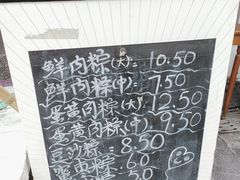 鲜肉粽(大):10.50
鲜肉粽(中):7.50
蛋黄肉粽(大):12.50
蛋黄肉粽(中):9.50
豆沙粽:8.50
蜜枣粽:6.0